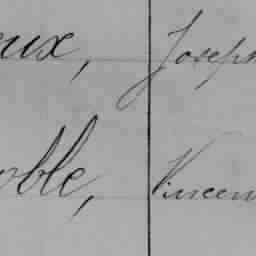 eux, Joseph
oble, Vincen